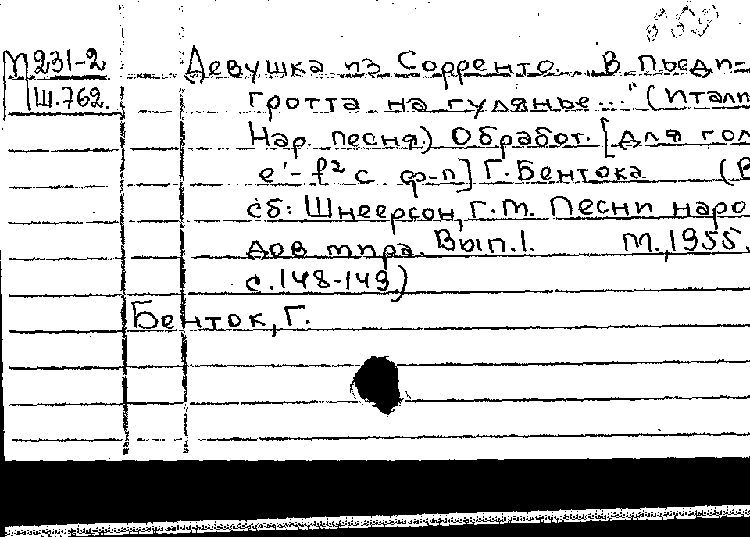 М231-2 Девушка из Сорренто. В Пьеди-
Ш.762. гротта на гулянье..." (Итали
Нар. песня.) Обработ. [для гол
e'-f² с ф-п] Г. Бентока (В
сб: Шнеерсон, Г.М. Песни наро
дов мира. Вып.1. М.,1955.
с.148-149)
Бенток, Г.